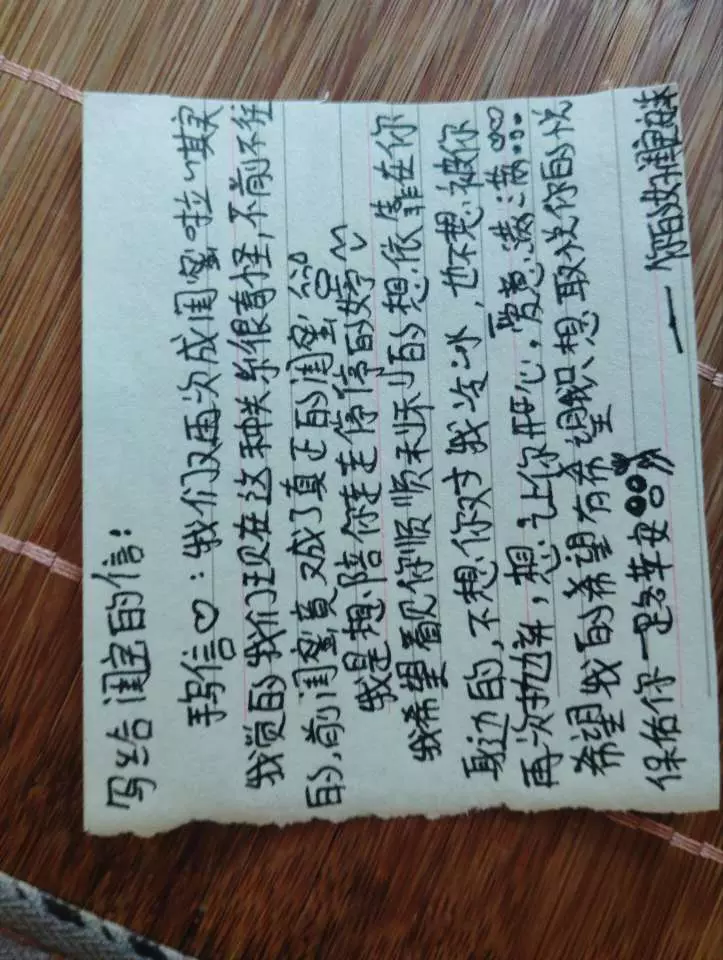 写给闺宝的信:
手写信♡:我们又再次成闺蜜啦~其实
我觉的我们现在这种关系很奇怪,不前不往
的,前闺蜜竟又成了真正的闺蜜
我是想陪你走走停停的好
我希望看见你顺顺利利的想依靠在你
身边的,不想你对我冷冰,也不想被你
再次抛弃,想让你开心,爱意满满...
希望我的希望有希望,只想取悦你的悦
保佑你一路平安
——你的好